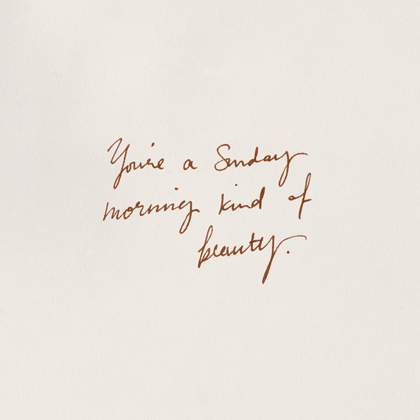 You're a Sunday
morning kind of
beauty.